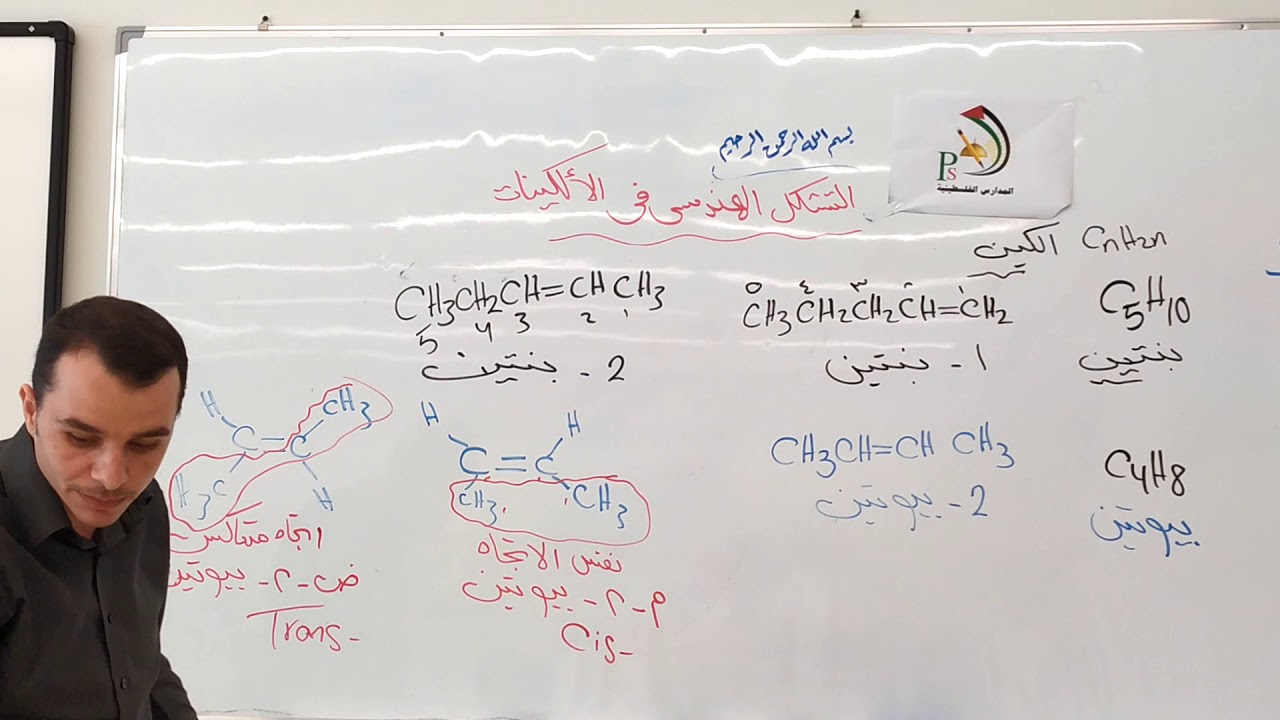 بسم الله الرحمن الرحيم
التشكل الهندسي في الألكينات
PS
المدارس الفلسطينية
الكين CnH2n
C5H10
بنتين
٥ ٤ ٣ ٢ ١
CH3CH2CH2CH=CH2
١ - بنتين
CH3CH2CH=CHCH3
5 4 3 2 1
2 - بنتين
C4H8
بيوتين
CH3CH=CH CH3
2 - بيوتين
H H
C=C
CH3 CH3
نفس الاتجاه
م - ٢ - بيوتين
Cis-
H CH3
C=C
H3C H
اتجاه متعاكس
ض - ٢ - بيوتين
Trans-